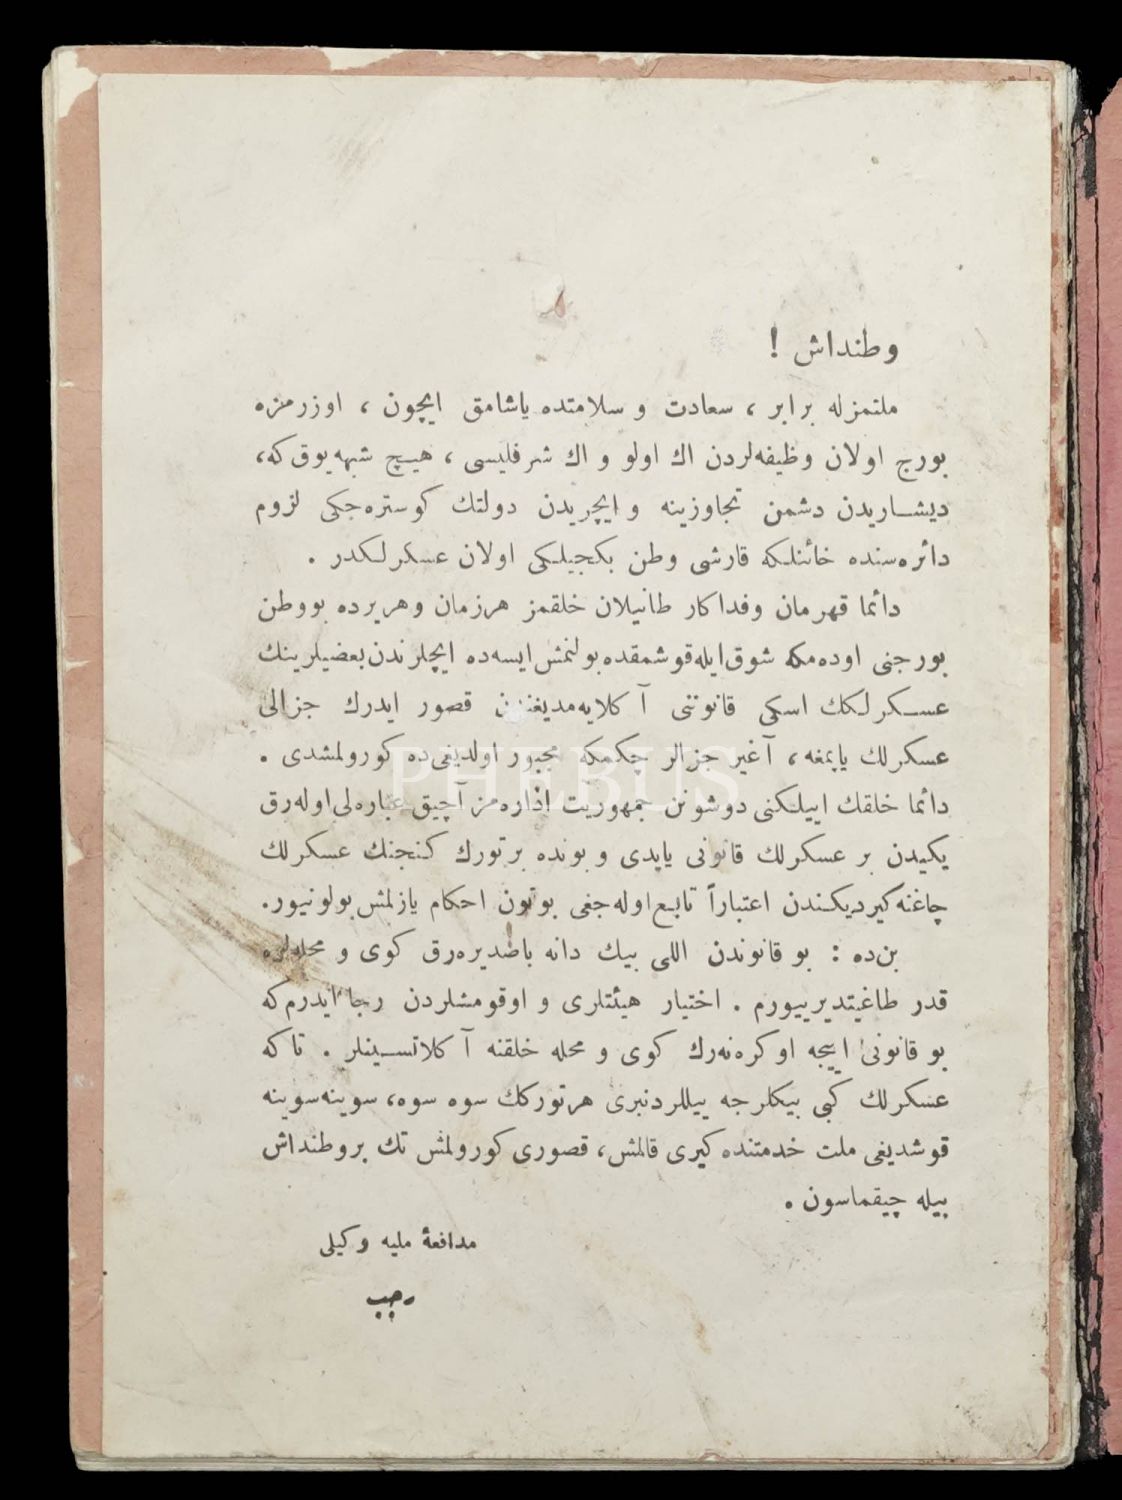 وطنداش !
ملتمزله برابر ، سعادت و سلامتده ياشامق ايچون ، اوزرمزه
بورج اولان وظيفه‌لردن اك اولو و اك شرفليسى ، هيچ شبهه يوق كه،
ديشاريدن دشمن تجاوزينه و ايچريدن دولتك كوستره‌جكى لزوم
دائره‌سنده خائنلكه قارشى وطن بكجيلكى اولان عسكرلكدر .
دائما قهرمان وفداكار طانيلان خلقمز هرزمان وهريرده بووطن
بورجنى اوده‌مكه شوق ايله قوشمقده بولنمش ايسه‌ده ايچلرندن بعضيلرينك
عسكرلكك اسكى قانوننى آكلايه‌مديغندن قصور ايدرك جزالى
عسكرلك يايمغه، آغير جزالر چكمكه مجبور اولديغى‌ده كورولمشدى .
دائما خلقك اييلكنى دوشونن جمهوريت اداره‌مز آچيق عباره‌لى اوله‌رق
يكيدن بر عسكرلك قانونى ياپدى و بونده بر تورك كنجنك عسكرلك
چاغنه كيرديكندن اعتباراً تابع اوله‌جغى بوتون احكام يازلمش بولونيور.
بن‌ده : بو قانوندن اللى بيك دانه باصديره‌رق كوى و محله‌لره
قدر طاغيتديرييورم . اختيار هيئتلرى و اوقومشلردن رجا ايدرم كه
بو قانونى اييجه اوكره‌نه‌رك كوى و محله خلقنه آكلاتسينلر . تاكه
عسكرلك كبى بيكلرجه ييللردنبرى هرتوركك سوه سوه، سوينه سوينه
قوشديغى ملت خدمتنده كيرى قالمش، قصورى كورولمش تك بروطنداش
بيله چيقماسون .
مدافعهٔ مليه وكيلى
رجب
PHEBUS